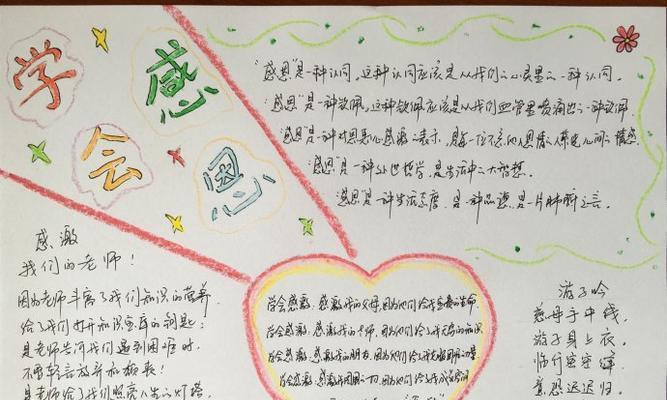 学会感恩
"感恩"是一种认同,这种认同应该是从我们的心灵里的一种认同。
"感恩"是一种钦佩,这种钦佩应该是从我们血管里喷涌出的一种钦佩
"感恩"是一种对恩惠心存感激的表示,是每一位不忘他人恩情的人萦绕心间的情感
"感恩"是一种处世哲学,是生活中的大智慧。
"感恩"是一种生活态度,是一种品德,是一片肺腑之言。
感激
我们的老师!
因为老师丰富了我们知识的营养
给了我们打开知识宝库的钥匙;
是老师告诉我们遇到困难时
不要轻言放弃和颓丧!
是老师给了我们照亮人生的灯塔
学会感激,感激我的父母,因为他们给我宝贵的生命
学会感激,感激我的老师,因为他们给了我无穷的知识
学会感激,感激我的朋友,因为他们给了我克服困难的力量
学会感激,感激我周围的一切,因为他们给了我
游子吟
慈母手中线,
游子身上衣。
临行密密缝
意恐迟迟归。